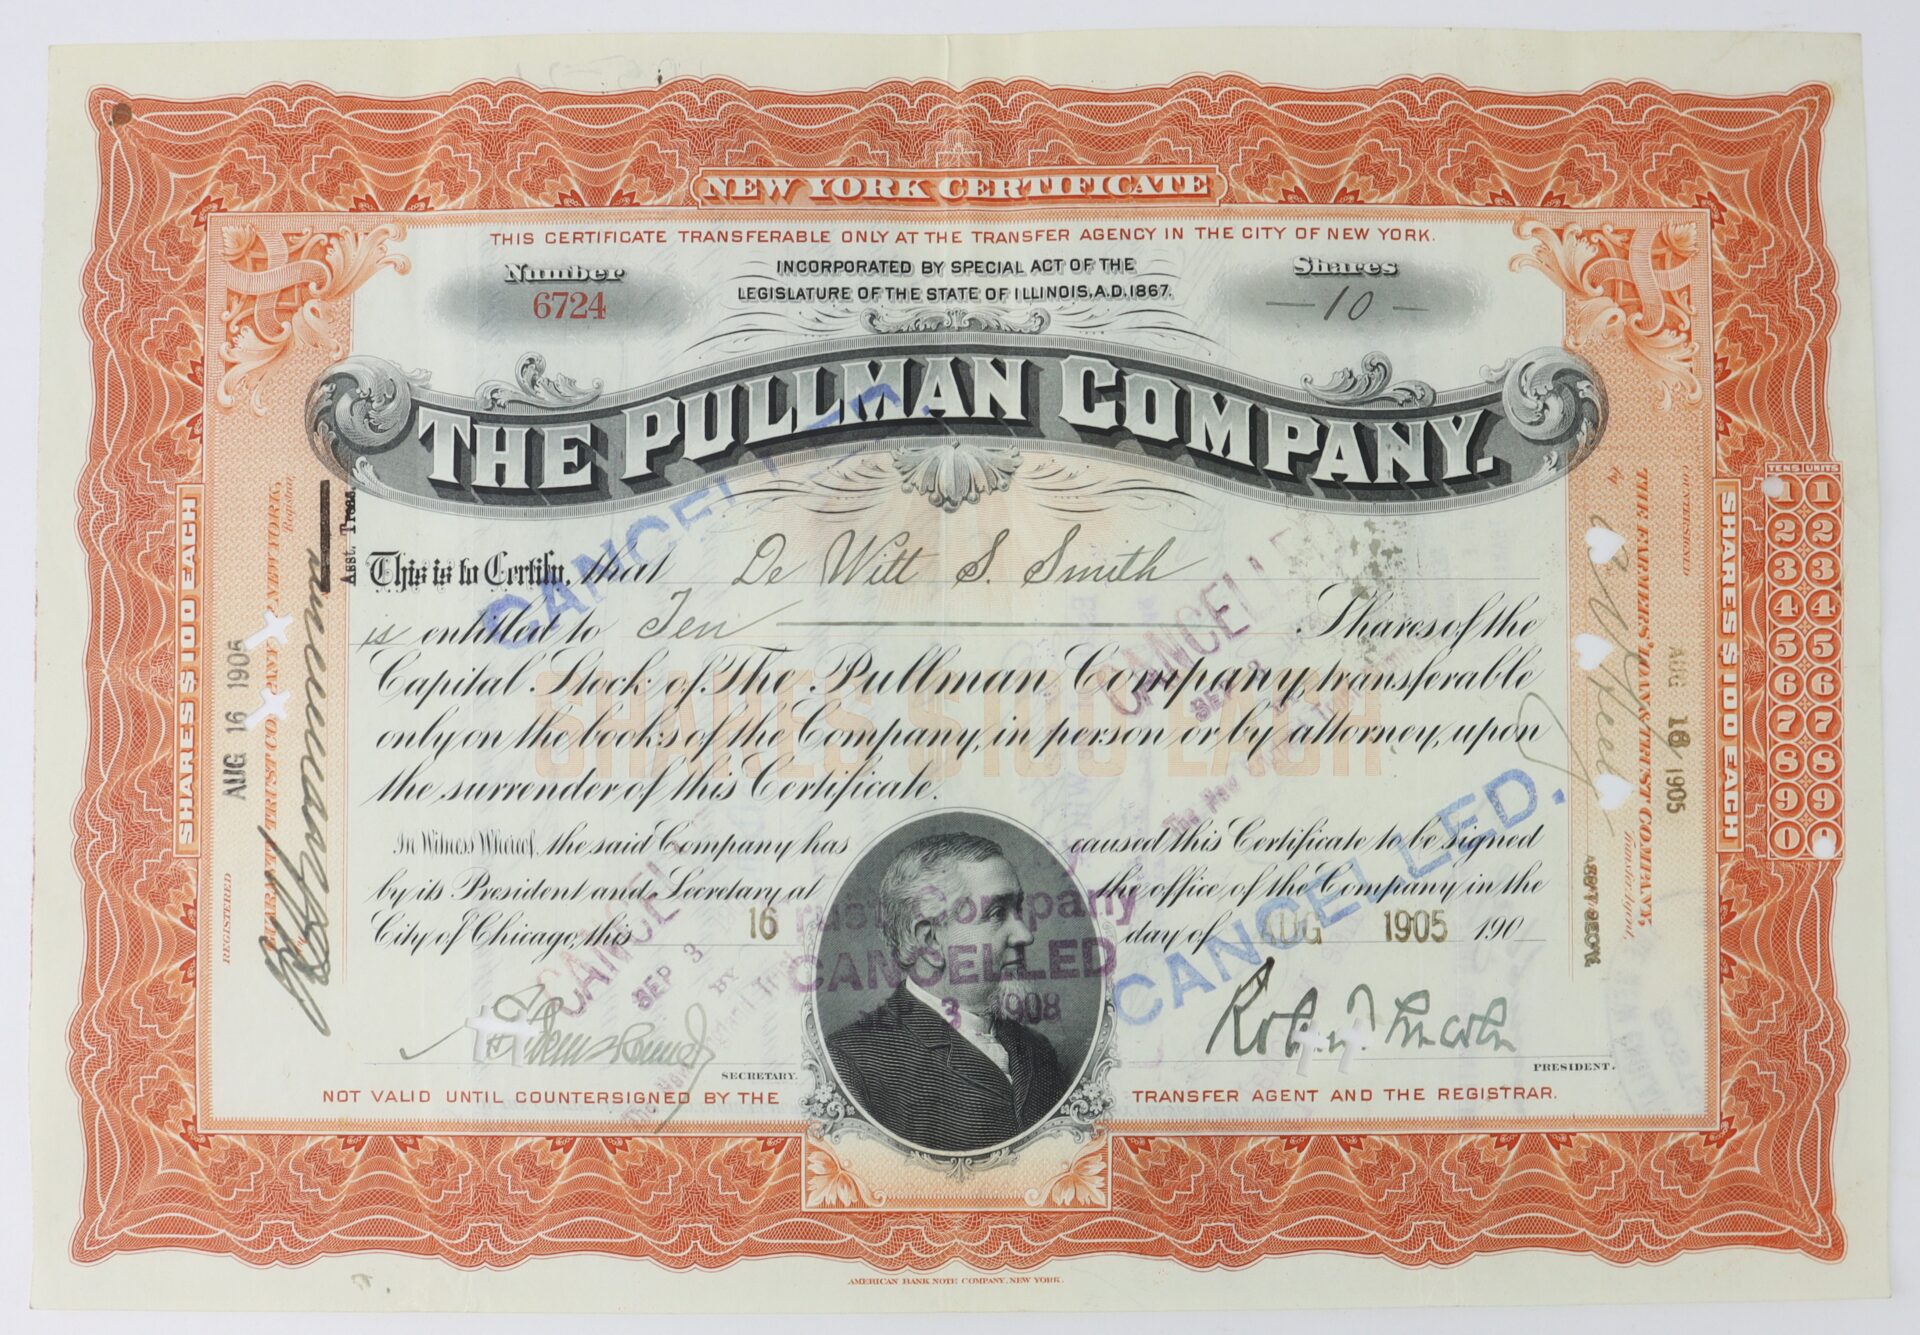 NEW YORK CERTIFICATE
THIS CERTIFICATE TRANSFERABLE ONLY AT THE TRANSFER AGENCY IN THE CITY OF NEW YORK.
Number
6724
INCORPORATED BY SPECIAL ACT OF THE
LEGISLATURE OF THE STATE OF ILLINOIS, A.D. 1867.
Shares
— 10 —
THE PULLMAN COMPANY.
CANCELLED.
This is to Certify, that De Witt S. Smith
is entitled to Ten Shares of the
Capital Stock of The Pullman Company, transferable
only on the books of the Company, in person or by attorney, upon
the surrender of this Certificate.
SHARES $100 EACH
CANCELLED
SEP 3
In Witness Whereof, the said Company has caused this Certificate to be signed
by its President and Secretary at the office of the Company in the
City of Chicago, this 16 day of AUG 1905 190
CANCELLED.
CANCELLED
SEP 3
BY
Trust Company
CANCELLED
SEP 3 1908
SECRETARY.
Robt. T. Lincoln
PRESIDENT.
NOT VALID UNTIL COUNTERSIGNED BY THE TRANSFER AGENT AND THE REGISTRAR.
AMERICAN BANK NOTE COMPANY, NEW YORK.
SHARES $100 EACH
REGISTERED
AUG 16 1905
TRUST CO
NEW YORK,
Registrar
Asst. Treas.
COUNTERSIGNED
THE FARMERS' LOAN AND TRUST COMPANY,
Transfer Agent,
by
AUG 16 1905
ASS'T SEC'Y.
SHARES $100 EACH
TENS UNITS
1 1
2 2
3 3
4 4
5 5
6 6
7 7
8 8
9 9
0 0